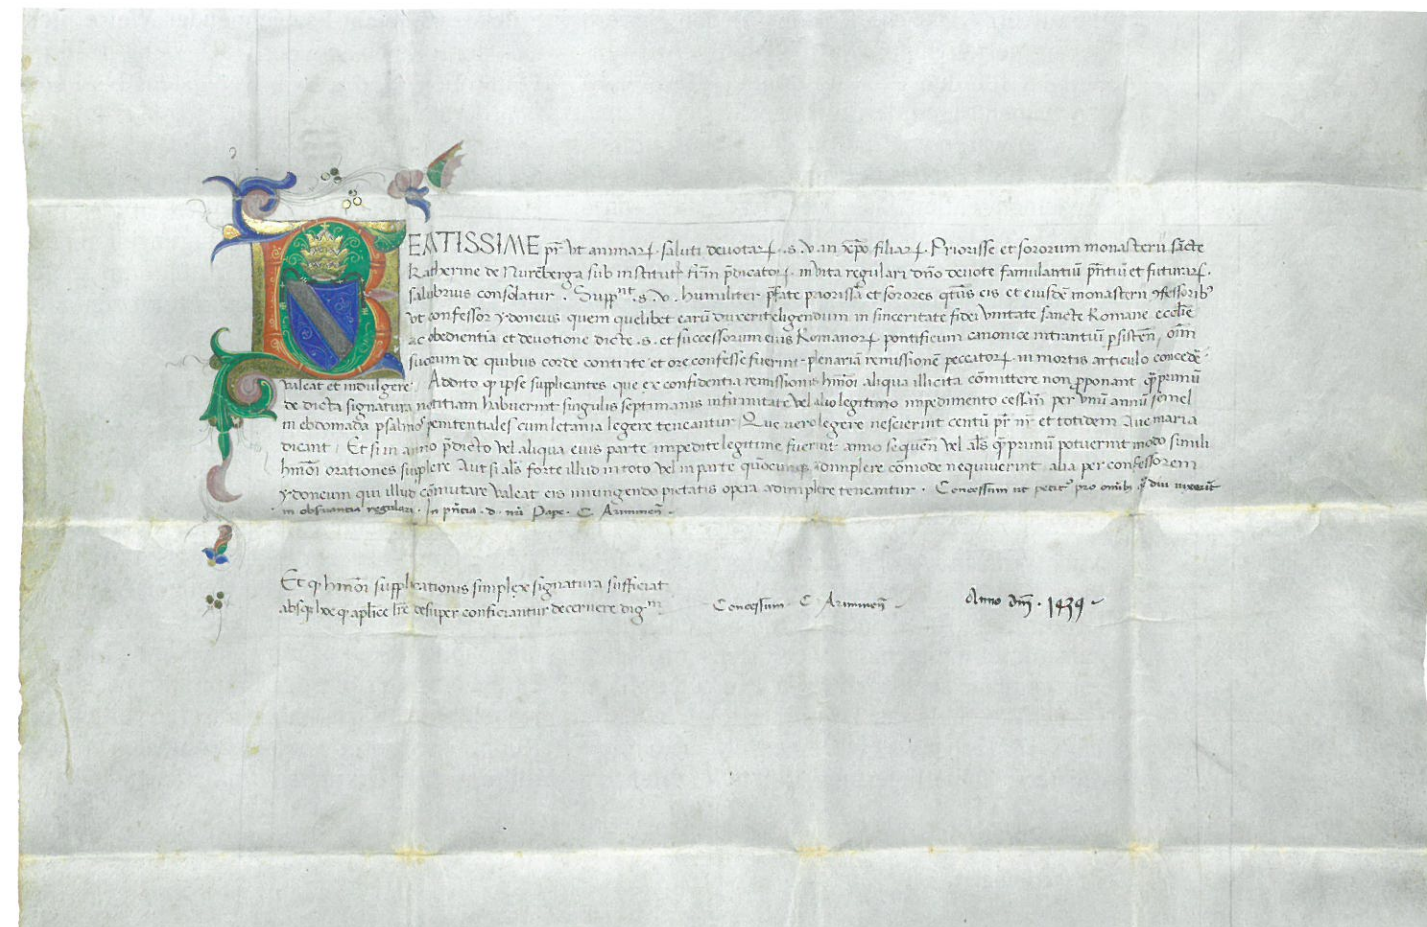 BEATISSIME pr̄ Vt animaꝝ saluti deuotaꝝ .s.v. in xp̄o filiaꝝ. Priorisse et sororum monasterii sācte
Katherine de Nurēberga sub institut' fr̄m p̄dicatoꝝ in vita regulari dn̄o deuote famulantiū pn̄tiū et futuraꝝ.
salubrius consolatur. Suppn̄t .s.v. humiliter p̄fate priorissa et sorores qt̄us eis et eiusdē monasterii ꝯfessoribꝰ
vt confessor ydoneus quem quelibet earū duxerit eligendum in sinceritate fidei vnitate sancte Romane ecclīe
ac obedientia et deuotione dicte .s. et successorum eius Romanoꝝ pontificum canonice intrantiū p̱sisten̄, oīm
suoꝝum de quibus corde contrite et ore confesse fuerint plenariā remissionē peccatoꝝ in mortis articulo concedē
valeat et indulgere. Addito qꝫ ipse supplicantes que ex confidentia remissionis hm̄oi aliqua illicita cōmittere non p̱ponant qp̄rimū
de dicta signatura notitiam habuerint singulis septimanis infirmitate vel alio legitimo impedimento cessn̄ per vnū annū semel
in ebdomada psalmos penitentiales cum letania legere teneantur. Que vero legere nescierint centū pr̄ nr̄ et totidem Aue maria
dicant. Et si in anno p̄dicto vel aliqua eius parte impedite legitime fuerint anno sequen̄ vel als̄ qp̄rimū potuerint modo simili
hm̄oi orationes supplere Aut si als̄ forte illud in toto vel in parte quōcunqꝫ adimplere cōmode nequiuerint alia per confessorem
ydoneum qui illud cōmutare valeat eis iniungendo pietatis opera adimplere teneantur. Concessum ut petitꝰ pro om̄ibꝫ qͣdiu uixerīt
in obs̄uantia regulari. In pn̄tia .d. nr̄i Pape. C Ariminen̄
Et qꝫ hm̄oi supplicationis simplex signatura sufficiat
absqꝫ hoc qꝫ aplīce lr̄e desuper conficiantur decernere dign̄
Concessum C Ariminen̄
Anno dn̄i. 1439